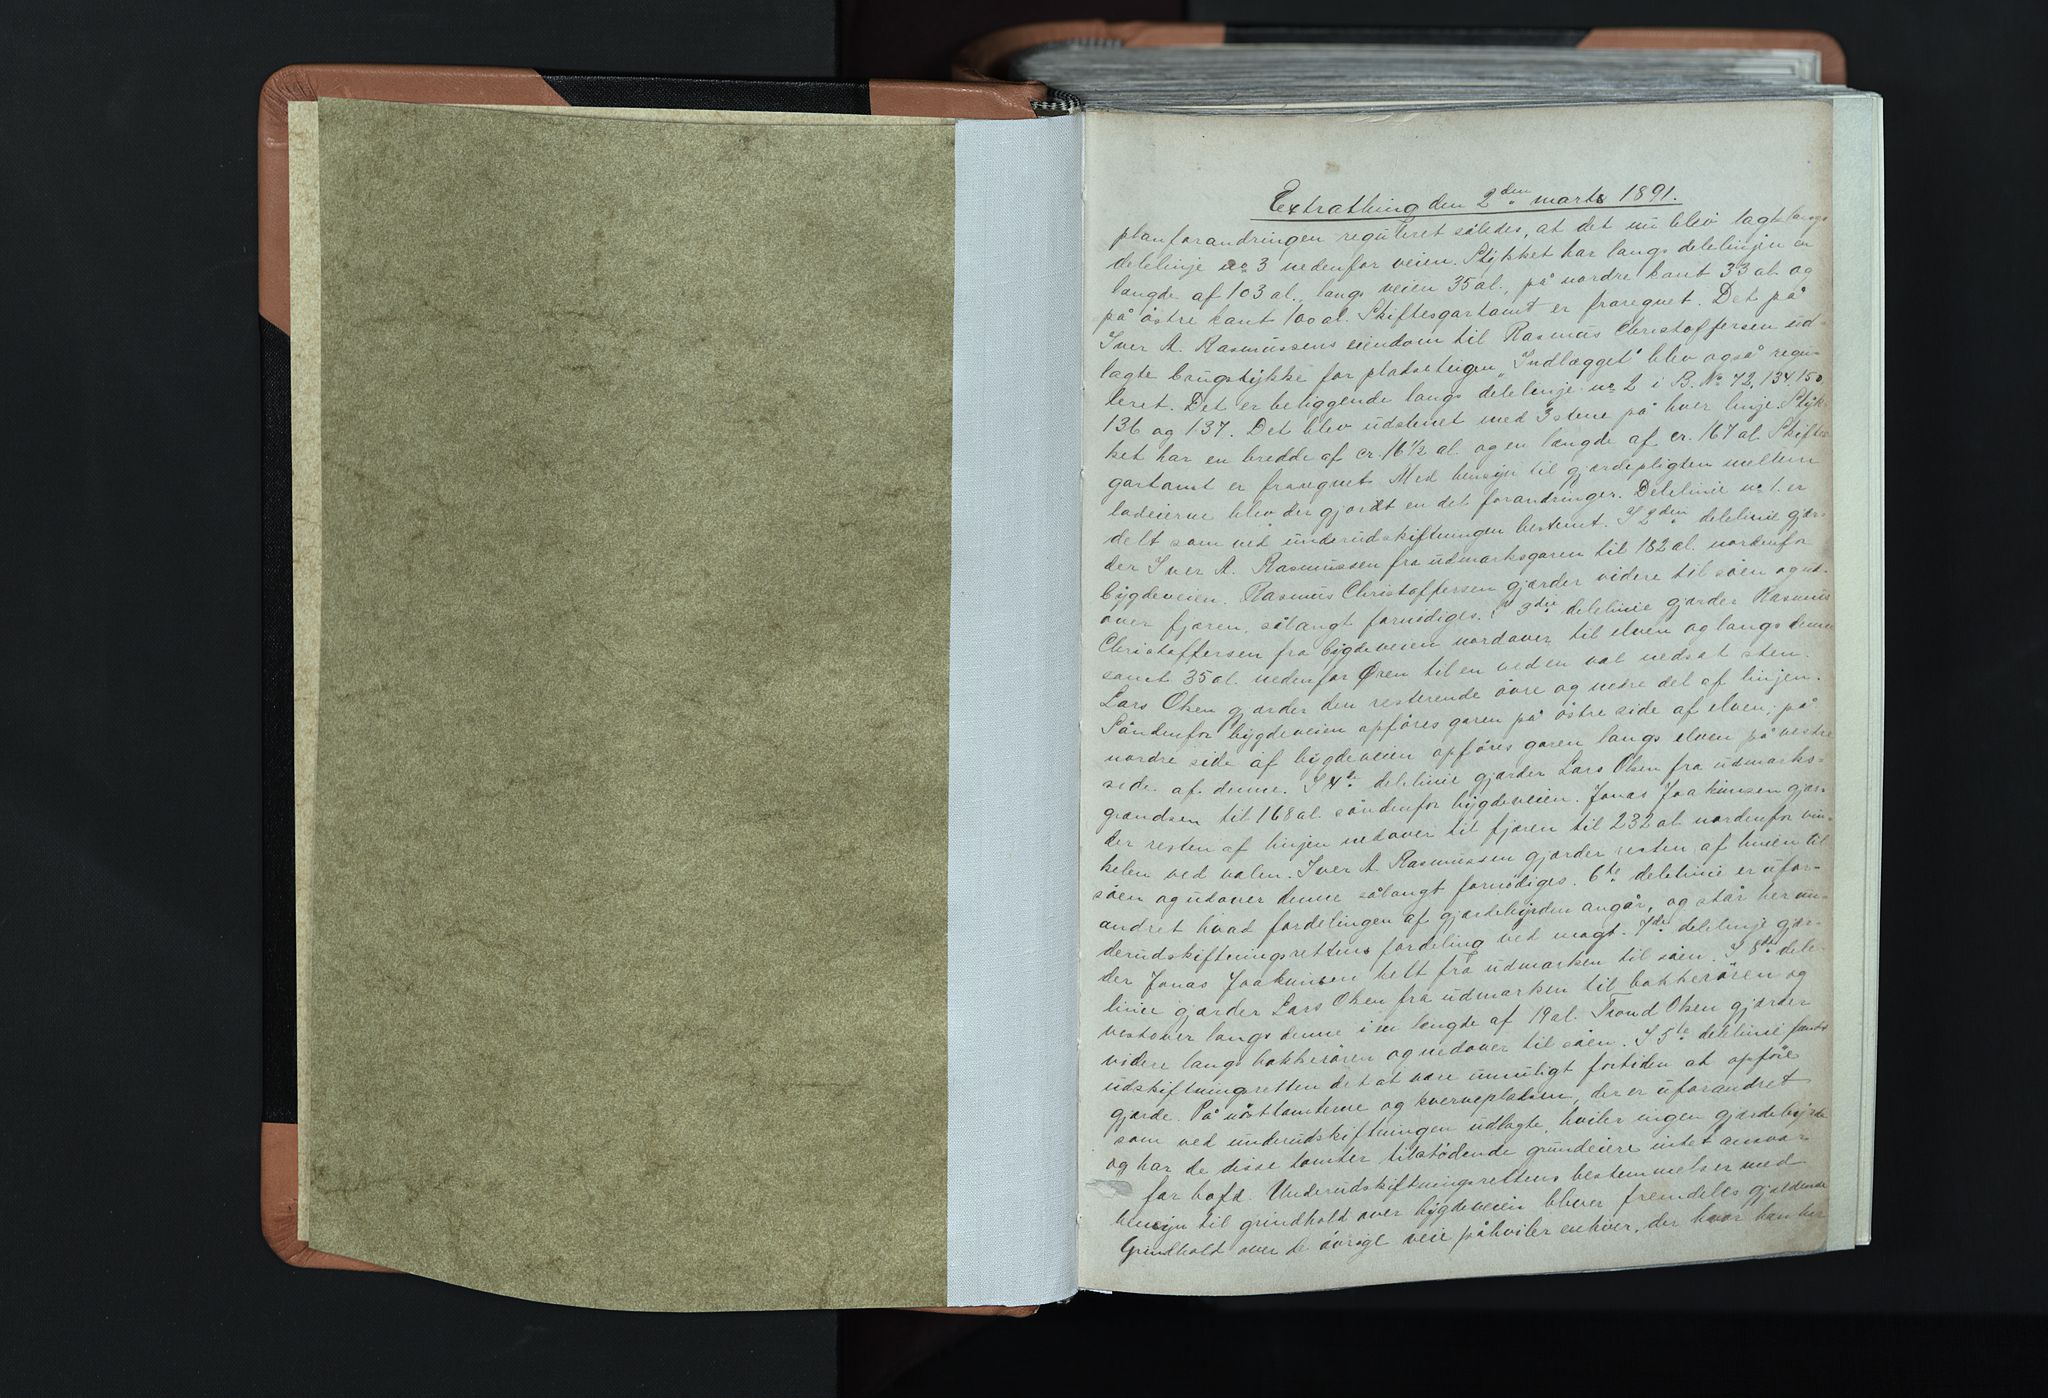 Extrathing den 2den marts 1891.
planforandringen reguleret således, at det nu blev lagt langs
delelinje no 3 nedenfor veien. Stykket har langs delelinjen en
længde af 103 al., langs veien 35 al., på nordre kant 33 al. og
på østre kant 100 al. Skiftesgartomt er fraregnet. Det på
Iver A. Rasmussens eiendom til Rasmus Christoffersen ud-
lagte brugstykke for pladseteigen "Indlægget" blev også regu-
leret. Det er beliggende langs delelinje no 2 i B. No 72, 134, 150,
136 og 137. Det blev udstenet med 3 stene på hver linje. Styk-
ket har en bredde af cr. 16 1/2 al. og en længde af cr. 167 al. Skiftes-
gartomt er fraregnet. Med hensyn til gjærdepligten mellem
lodeierne blev der gjordt en del forandringer. Delelinie no 1. er
delt som ved underudskiftningen bestemt. I 2den delelinie gjær-
der Iver A. Rasmussen fra udmarksgaren til 182 al. nordenfor
bygdeveien. Rasmus Christoffersen gjærder videre til søen og ud-
over fjæren, sålangt fornødiges. I 3die delelinie gjærder Rasmus
Christoffersen fra bygdeveien nordover til elven og langs denne
samt 35 al. nedenfor Øren til en ved en val nedsat sten.
Lars Olsen gjærder den resterende øvre og nedre del af linjen.
Søndenfor bygdeveien opføres garen på østre side af elven; på
nordre side af bygdeveien opføres garen langs elven på vestre
side af denne. I 4de delelinie gjærder Lars Olsen fra udmarks-
grændsen til 168 al. søndenfor bygdeveien. Jonas Joakimsen gjær-
der resten af linjen nedover til fjæren til 232 al. nordenfor vin-
kelen ved valen. Iver A. Rasmussen gjærder resten af linien til
søen og udover denne sålangt fornødiges. 6te delelinie er ufor-
andret hvad fordelingen af gjærdebyrden angår, og står her un-
derudskiftningsrettens fordeling ved magt. 7de delelinje gjær-
der Jonas Joakimsen helt fra udmarken til søen. I 8de dele-
linie gjærder Lars Olsen fra udmarken til bakkerøren og
vestover langs denne i en længde af 19 al. Trond Olsen gjærder
videre langs bakkerøren og nedover til søen. I 5te delelinie fandt
udskiftningsretten det at være umuligt fortiden at opføre
gjærde. På nøsttomterne og kvernepladsen, der er uforandret
som ved underudskiftningen udlagte, hviler ingen gjærdebyrde
og har de disse tomter tilstødende grundeiere intet ansvar
for bofæ. Underudskiftningsrettens bestemmelser med
hensyn til grindhold over bygdeveien bliver fremdeles gjældende
Grindhold over de øvrige veie påhviler enhver, der hvor han har